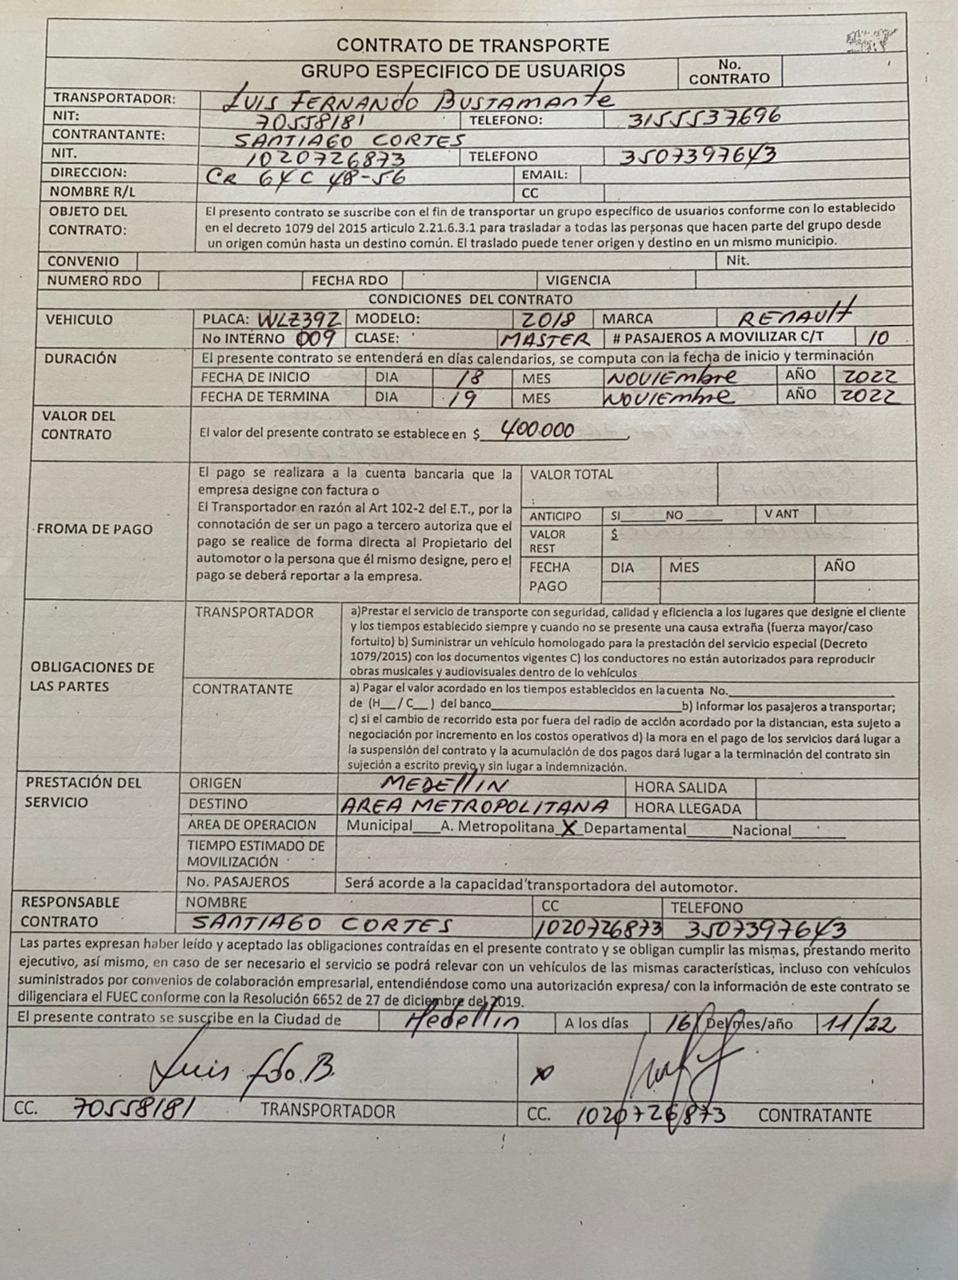 CONTRATO DE TRANSPORTE
GRUPO ESPECIFICO DE USUARIOS No. CONTRATO
TRANSPORTADOR: LUIS FERNANDO BUSTAMANTE
NIT: 70558181 TELEFONO: 3155537696
CONTRANTANTE: SANTIAGO CORTES
NIT. 1020726873 TELEFONO 3507397643
DIRECCION: CR 64C 48-56 EMAIL:
NOMBRE R/L CC
OBJETO DEL CONTRATO: El presento contrato se suscribe con el fin de transportar un grupo específico de usuarios conforme con lo establecido
en el decreto 1079 del 2015 articulo 2.21.6.3.1 para trasladar a todas las personas que hacen parte del grupo desde
un origen común hasta un destino común. El traslado puede tener origen y destino en un mismo municipio.
CONVENIO Nit.
NUMERO RDO FECHA RDO VIGENCIA
CONDICIONES DEL CONTRATO
VEHICULO PLACA: WLZ392 MODELO: 2018 MARCA RENAULT
No INTERNO 009 CLASE: MASTER # PASAJEROS A MOVILIZAR C/T 10
DURACIÓN El presente contrato se entenderá en días calendarios, se computa con la fecha de inicio y terminación
FECHA DE INICIO DIA 18 MES NOVIEMbre AÑO 2022
FECHA DE TERMINA DIA 19 MES NOVIEMbre AÑO 2022
VALOR DEL CONTRATO El valor del presente contrato se establece en $ 400.000
FROMA DE PAGO
El pago se realizara a la cuenta bancaria que la
empresa designe con factura o
El Transportador en razón al Art 102-2 del E.T., por la
connotación de ser un pago a tercero autoriza que el
pago se realice de forma directa al Propietario del
automotor o la persona que él mismo designe, pero el
pago se deberá reportar a la empresa.
VALOR TOTAL
:
ANTICIPO SI____NO____ V ANT
VALOR REST $
FECHA PAGO DIA MES AÑO
OBLIGACIONES DE LAS PARTES
TRANSPORTADOR a)Prestar el servicio de transporte con seguridad, calidad y eficiencia a los lugares que designe el cliente
y los tiempos establecido siempre y cuando no se presente una causa extraña (fuerza mayor/caso
fortuito) b) Suministrar un vehículo homologado para la prestación del servicio especial (Decreto
1079/2015) con los documentos vigentes C) los conductores no están autorizados para reproducir
obras musicales y audiovisuales dentro de lo vehículos
CONTRATANTE a) Pagar el valor acordado en los tiempos establecidos en la cuenta No.____
de (H__/ C__ ) del banco____b) Informar los pasajeros a transportar;
c) si el cambio de recorrido esta por fuera del radio de acción acordado por la distancian, esta sujeto a
negociación por incremento en los costos operativos d) la mora en el pago de los servicios dará lugar a
la suspensión del contrato y la acumulación de dos pagos dará lugar a la terminación del contrato sin
sujeción a escrito previo y sin lugar a indemnización.
PRESTACIÓN DEL SERVICIO
ORIGEN MEDELLIN HORA SALIDA
DESTINO AREA METROPOLITANA HORA LLEGADA
AREA DE OPERACION Municipal____A. Metropolitana X Departamental____Nacional____
TIEMPO ESTIMADO DE MOVILIZACIÓN
No. PASAJEROS Será acorde a la capacidad transportadora del automotor.
RESPONSABLE CONTRATO
NOMBRE CC TELEFONO
SANTIAGO CORTES 1020726873 3507397643
Las partes expresan haber leído y aceptado las obligaciones contraídas en el presente contrato y se obligan cumplir las mismas, prestando merito
ejecutivo, así mismo, en caso de ser necesario el servicio se podrá relevar con un vehículos de las mismas características, incluso con vehículos
suministrados por convenios de colaboración empresarial, entendiéndose como una autorización expresa/ con la información de este contrato se
diligenciara el FUEC conforme con la Resolución 6652 de 27 de diciembre del 2019.
El presente contrato se suscribe en la Ciudad de Medellin A los días 16 Del mes/año 11/22
Luis Fdo. B. x
CC. 70558181 TRANSPORTADOR CC. 1020726873 CONTRATANTE